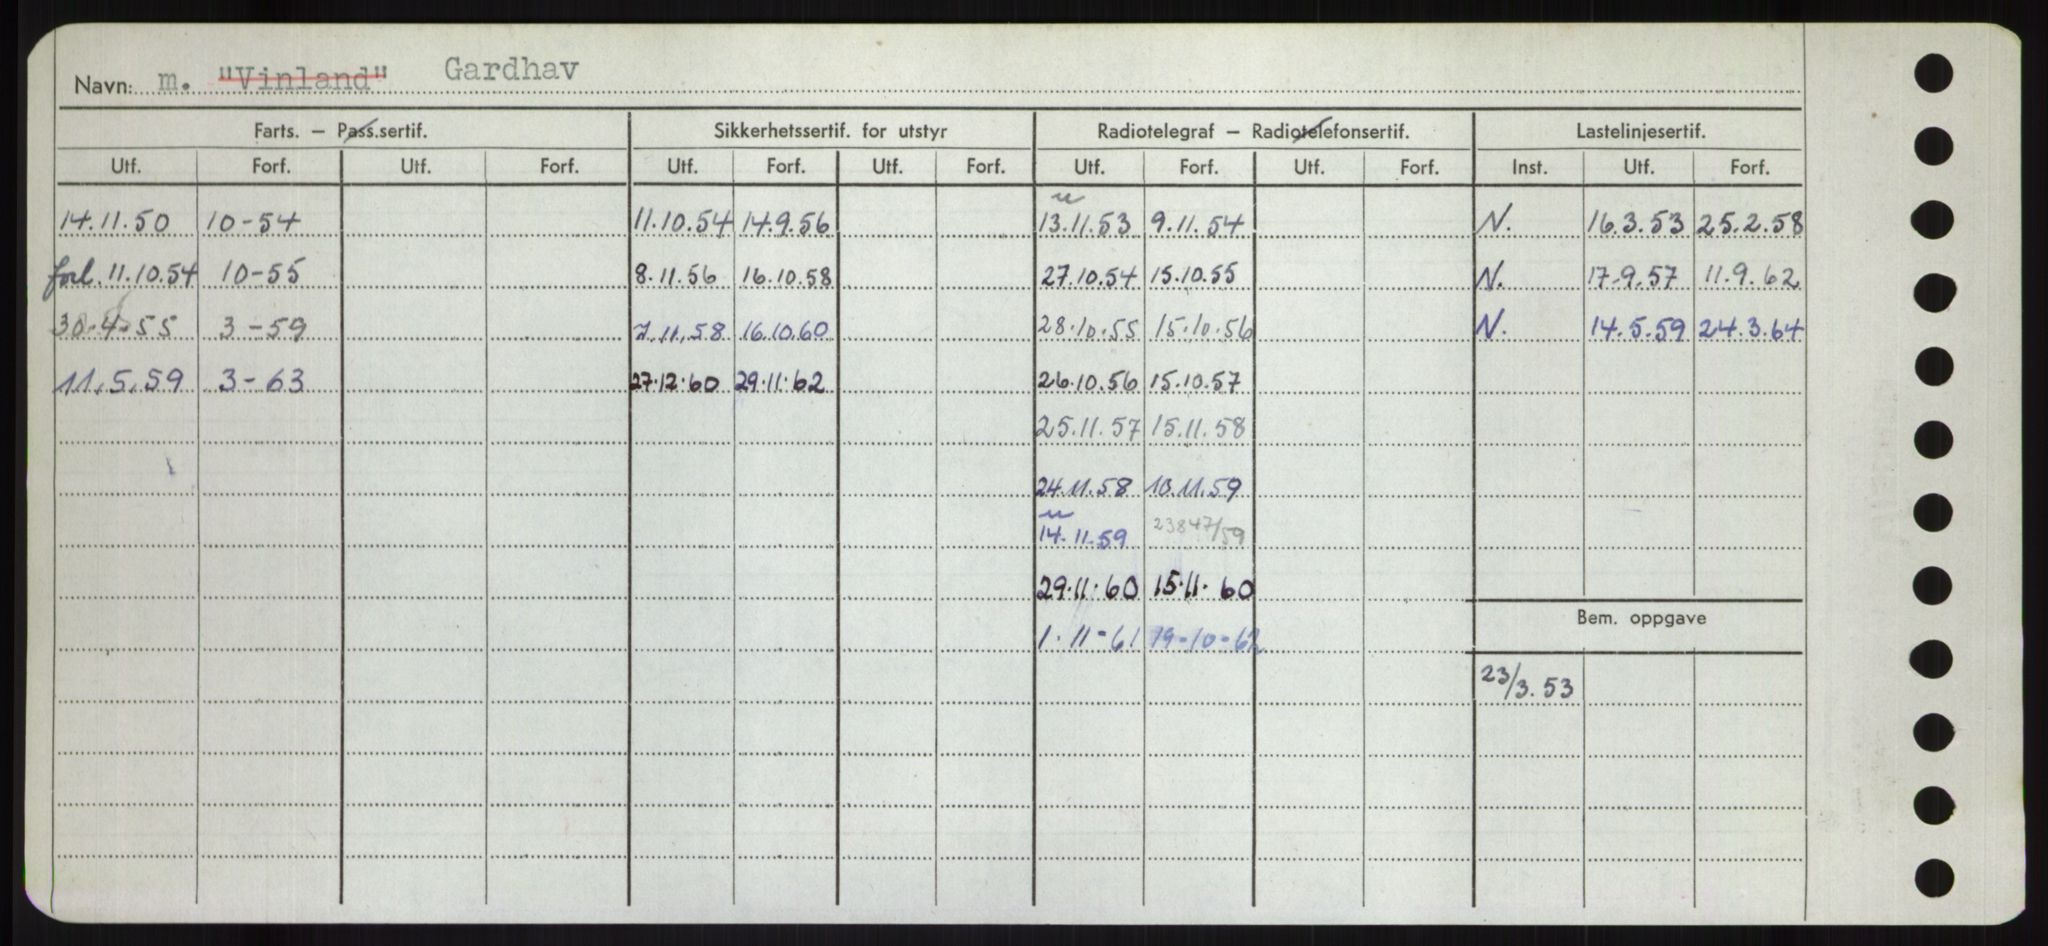 Navn: m. "Vinland" Gardhav
Farts. – Pass.sertif. Sikkerhetssertif. for utstyr Radiotelegraf – Radiotelefonsertif. Lastelinjesertif.
Utf. Forf. Utf. Forf. Utf. Forf. Utf. Forf. Utf. Forf. Utf. Forf. Inst. Utf. Forf.
14.11.50 10-54 11.10.54 14.9.56 13.11.53 9.11.54 N. 16.3.53 25.2.58
forl. 11.10.54 10-55 8.11.56 16.10.58 27.10.54 15.10.55 N. 17.9.57 11.9.62
30.4.55 3-59 7.11.58 16.10.60 28.10.55 15.10.56 N. 14.5.59 24.3.64
11.5.59 3-63 27.12.60 29.11.62 26.10.56 15.10.57
25.11.57 15.11.58
24.11.58 10.11.59
14.11.59 23847/59
29.11.60 15.11.60
Bem. oppgave
1.11-61 19-10-62
23/3.53